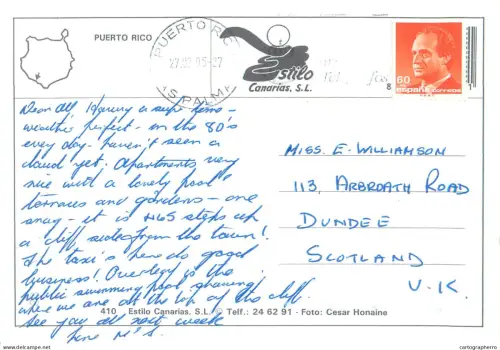 PUERTO RICO
PUERTO RIC
27.02.95-27
AS PALMA
Estilo
Canarias, S.L.
60
españa correos
8
1
Dear All, Having a super time -
weather perfect - in the 80's
every day - haven't seen a
cloud yet. Apartments very
nice with a lovely pool
terraces and gardens - one
snag - it is 465 steps up
a cliff side from the town!
The taxi's here do good
business! Overleaf is the
public swimming pool showing
where we are at the top of the cliff.
See you all next week
MISS. E. WILLIAMSON
113, ARBROATH ROAD
DUNDEE
SCOTLAND
U.K.
410 Estilo Canarias, S.L. © Telf.: 24 62 91 - Foto: Cesar Honaine